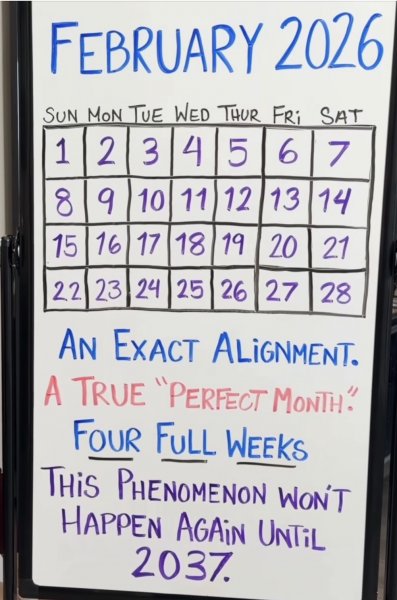 FEBRUARY 2026
SUN MON TUE WED THUR FRI SAT
1 2 3 4 5 6 7
8 9 10 11 12 13 14
15 16 17 18 19 20 21
22 23 24 25 26 27 28
AN EXACT ALIGNMENT.
A TRUE "PERFECT MONTH."
FOUR FULL WEEKS
THIS PHENOMENON WON'T
HAPPEN AGAIN UNTIL
2037.